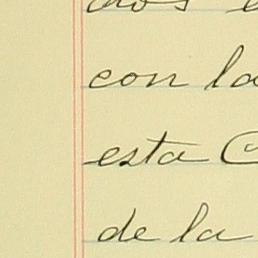 con la
esta
de la